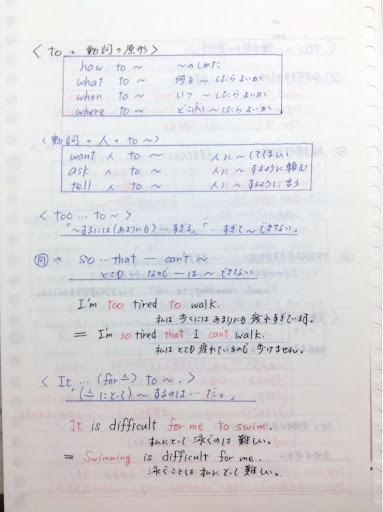 < to + 動詞の原形 >
how to ~ ~のしかた
what to ~ 何を~したらよいか
when to ~ いつ~したらよいか
where to ~ どこに(へ)~したらよいか
< 動詞 + 人 + to ~ >
want 人 to ~ 人に~してほしい
ask 人 to ~ 人に~するように頼む
tell 人 to ~ 人に~するように言う
< too … to ~ >
「~するには(あまりにも)…すぎる」「…すぎて~できない」
同 → so … that ― can't ~
とても…なので―は~できない
I'm too tired to walk.
私は歩くにはあまりにも疲れすぎています。
= I'm so tired that I can't walk.
私はとても疲れているので歩けません。
< It … (for △) to ~ . >
「(△にとって)~するのは…だ。」
It is difficult for me to swim.
私にとって泳ぐのは難しい。
= Swimming is difficult for me.
泳ぐことは私にとって難しい。